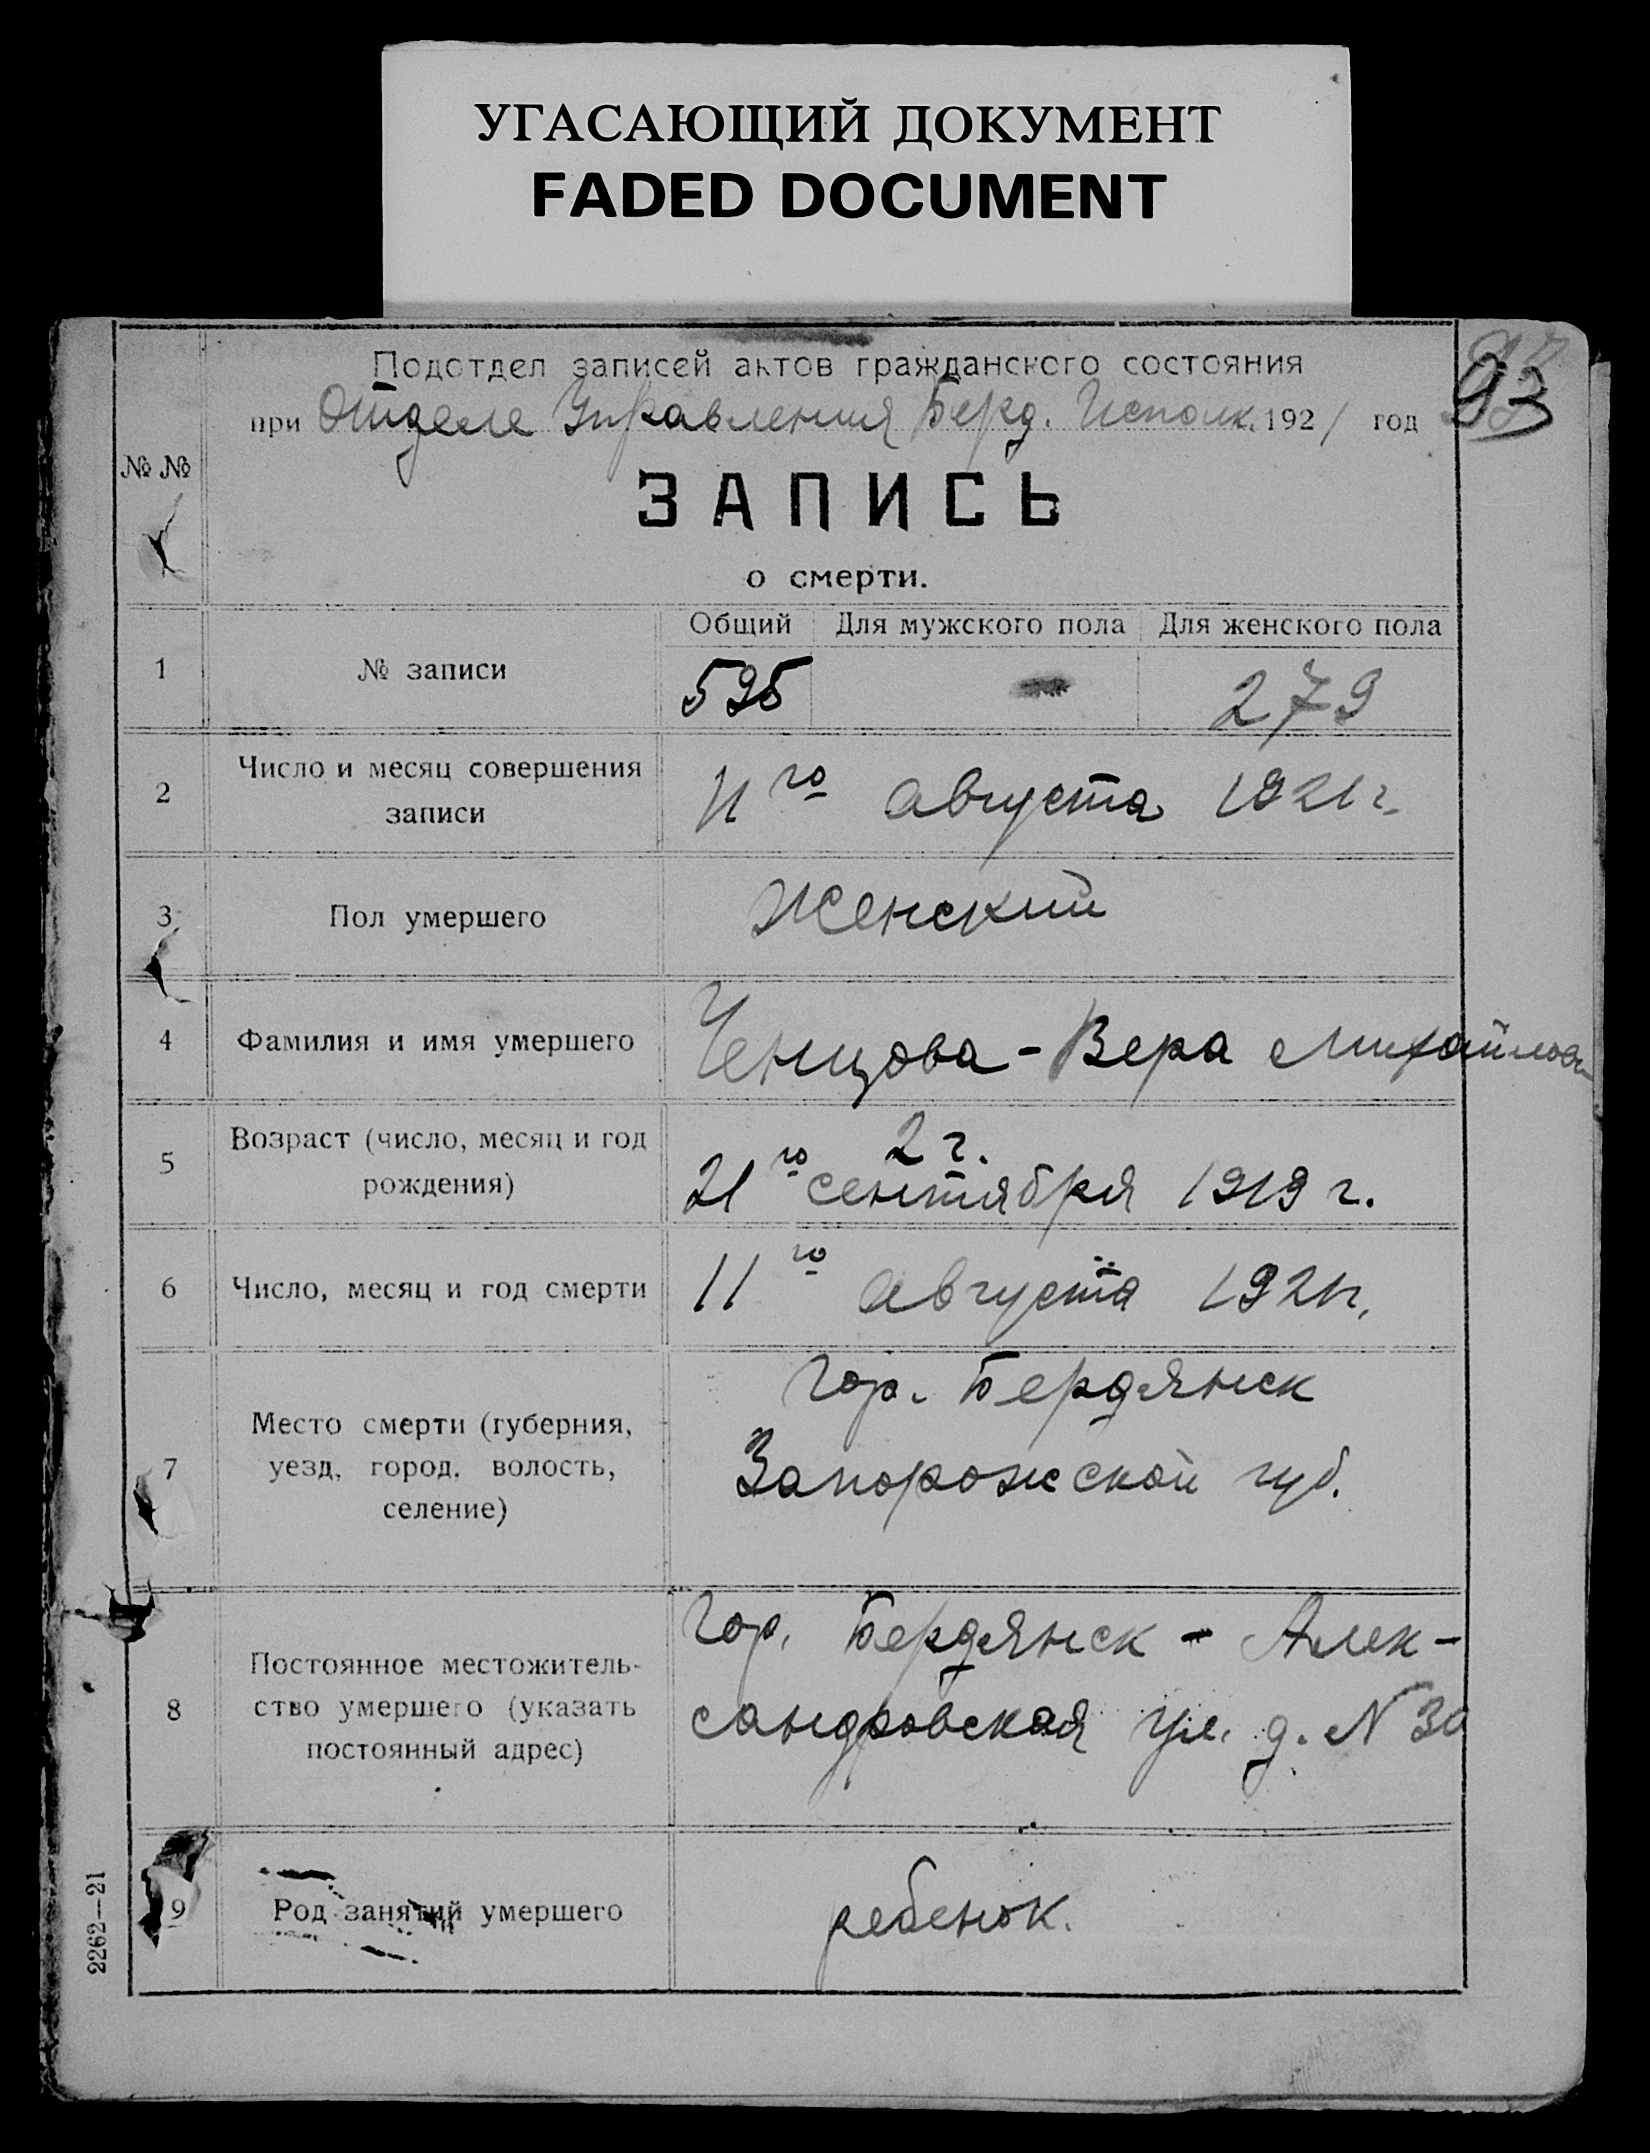 УГАСАЮЩИЙ ДОКУМЕНТ
FADED DOCUMENT
Подотдел записей актов гражданского состояния
при Отделе Управления Берд. Исполк. 1921 год
93
№ №
ЗАПИСЬ
о смерти.
Общий Для мужского пола Для женского пола
1 № записи 595 279
2 Число и месяц совершения
записи
11го августа 1921 г.
3 Пол умершего Женский
4 Фамилия и имя умершего Ченцова - Вера Михайлов
5 Возраст (число, месяц и год
рождения)
2 г.
21го сентября 1919 г.
6 Число, месяц и год смерти 11го августа 1921 г.
7 Место смерти (губерния,
уезд, город, волость,
селение)
Гор. Бердянск
Запорожской губ.
8 Постоянное местожитель-
ство умершего (указать
постоянный адрес)
Гор. Бердянск - Алек-
сандровская ул. д. N 30
9 Род занятий умершего ребенок.
2262—21